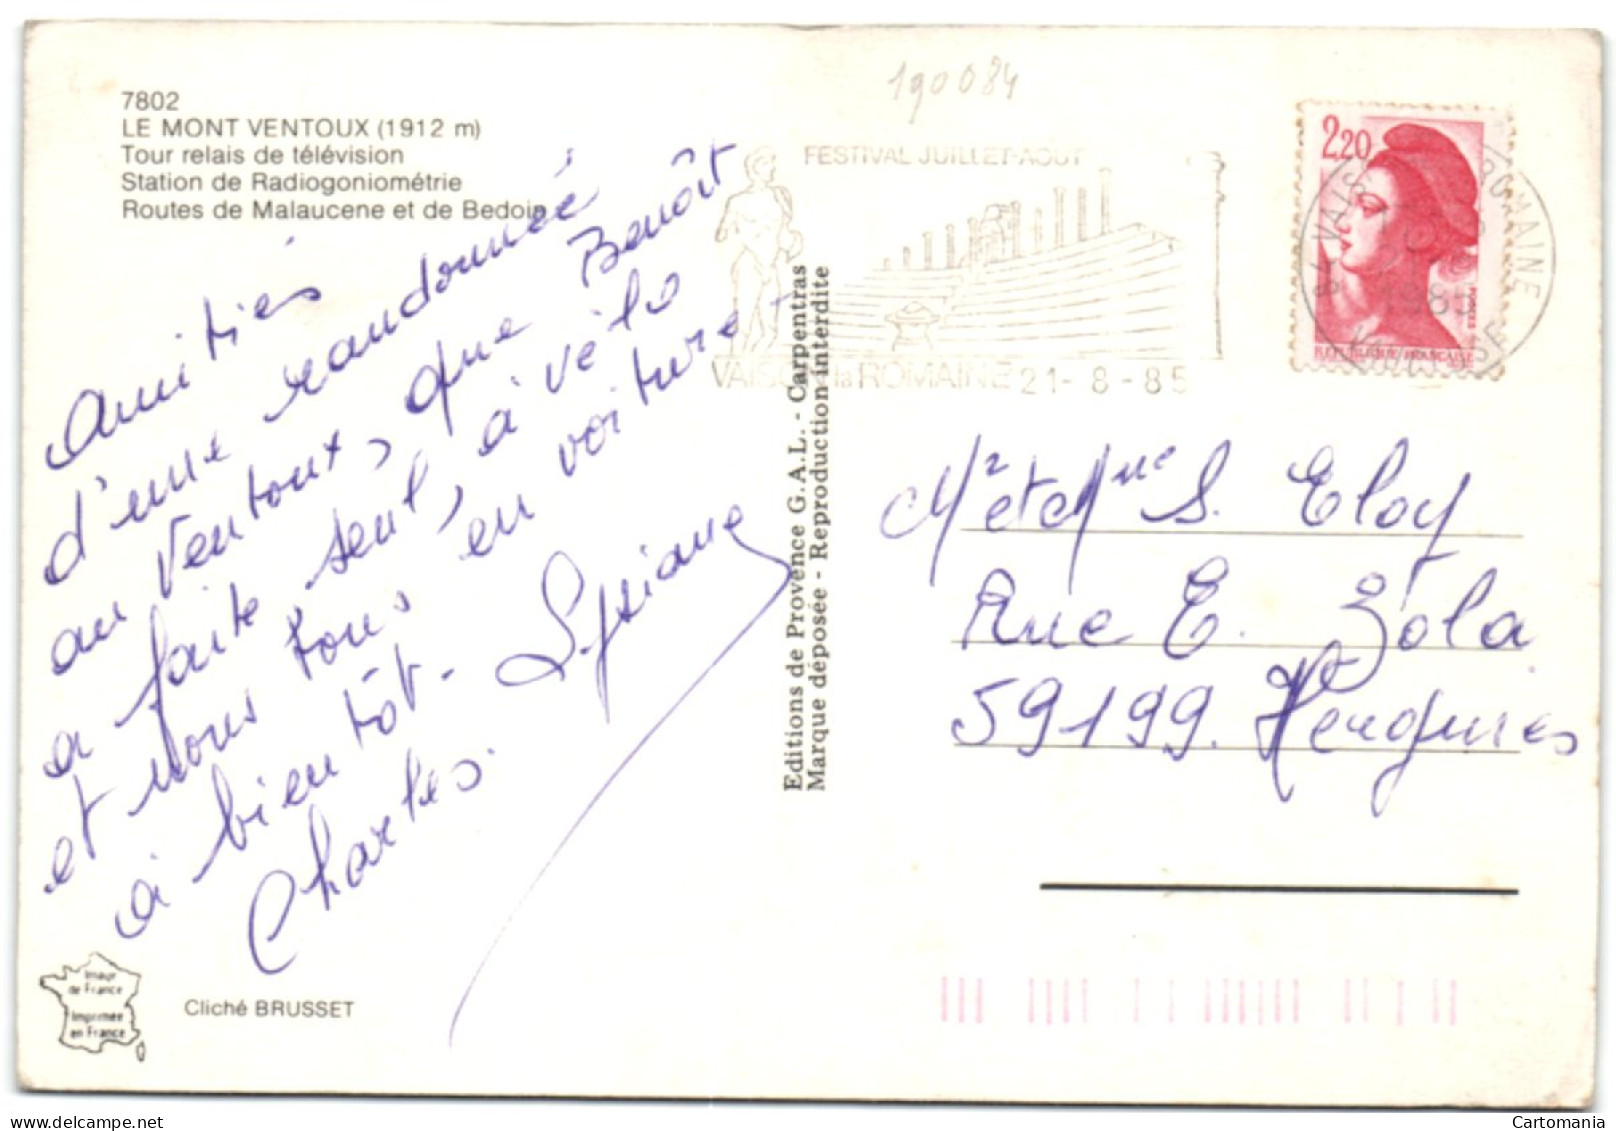 190084
7802
LE MONT VENTOUX (1912 m)
Tour relais de télévision
Station de Radiogoniométrie
Routes de Malaucene et de Bedoin
Amitiés
d'une randonnée
au Ventoux, que Benoît
a faite seul, à vélo
et nous tous en voiture
à bientôt.
Charles. Lysiane
FESTIVAL JUILLET-AOUT
VAISON la ROMAINE 21-8-85
2,20
POSTES
REPUBLIQUE FRANÇAISE
84 VAISON LA ROMAINE
1985
VAUCLUSE
Editions de Provence G.A.L. - Carpentras
Marque déposée - Reproduction interdite
Mr et Mme S. Eloy
Rue E. Zola
59199. Hergnies
Imaur
de France
Imprimée
en France
Cliché BRUSSET
delcampe.net
Cartomania